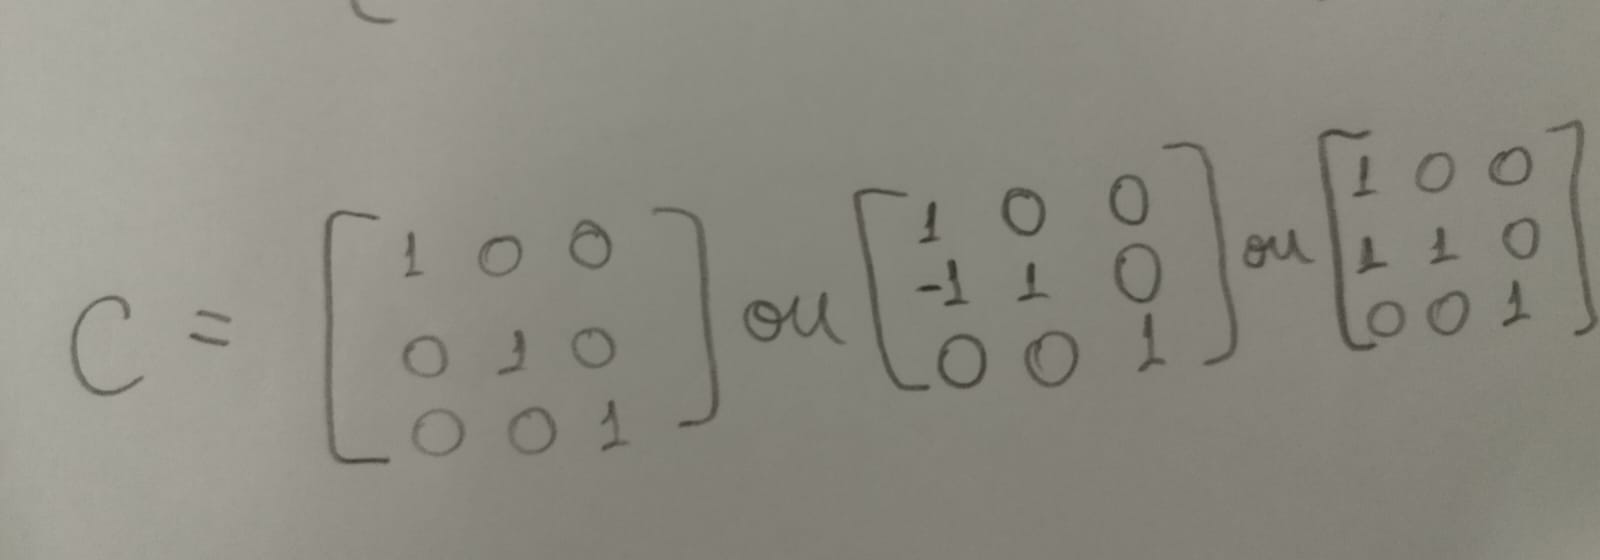 C = [1 0 0; 0 1 0; 0 0 1] ou [1 0 0; -1 1 0; 0 0 1] ou [1 0 0; 1 1 0; 0 0 1]